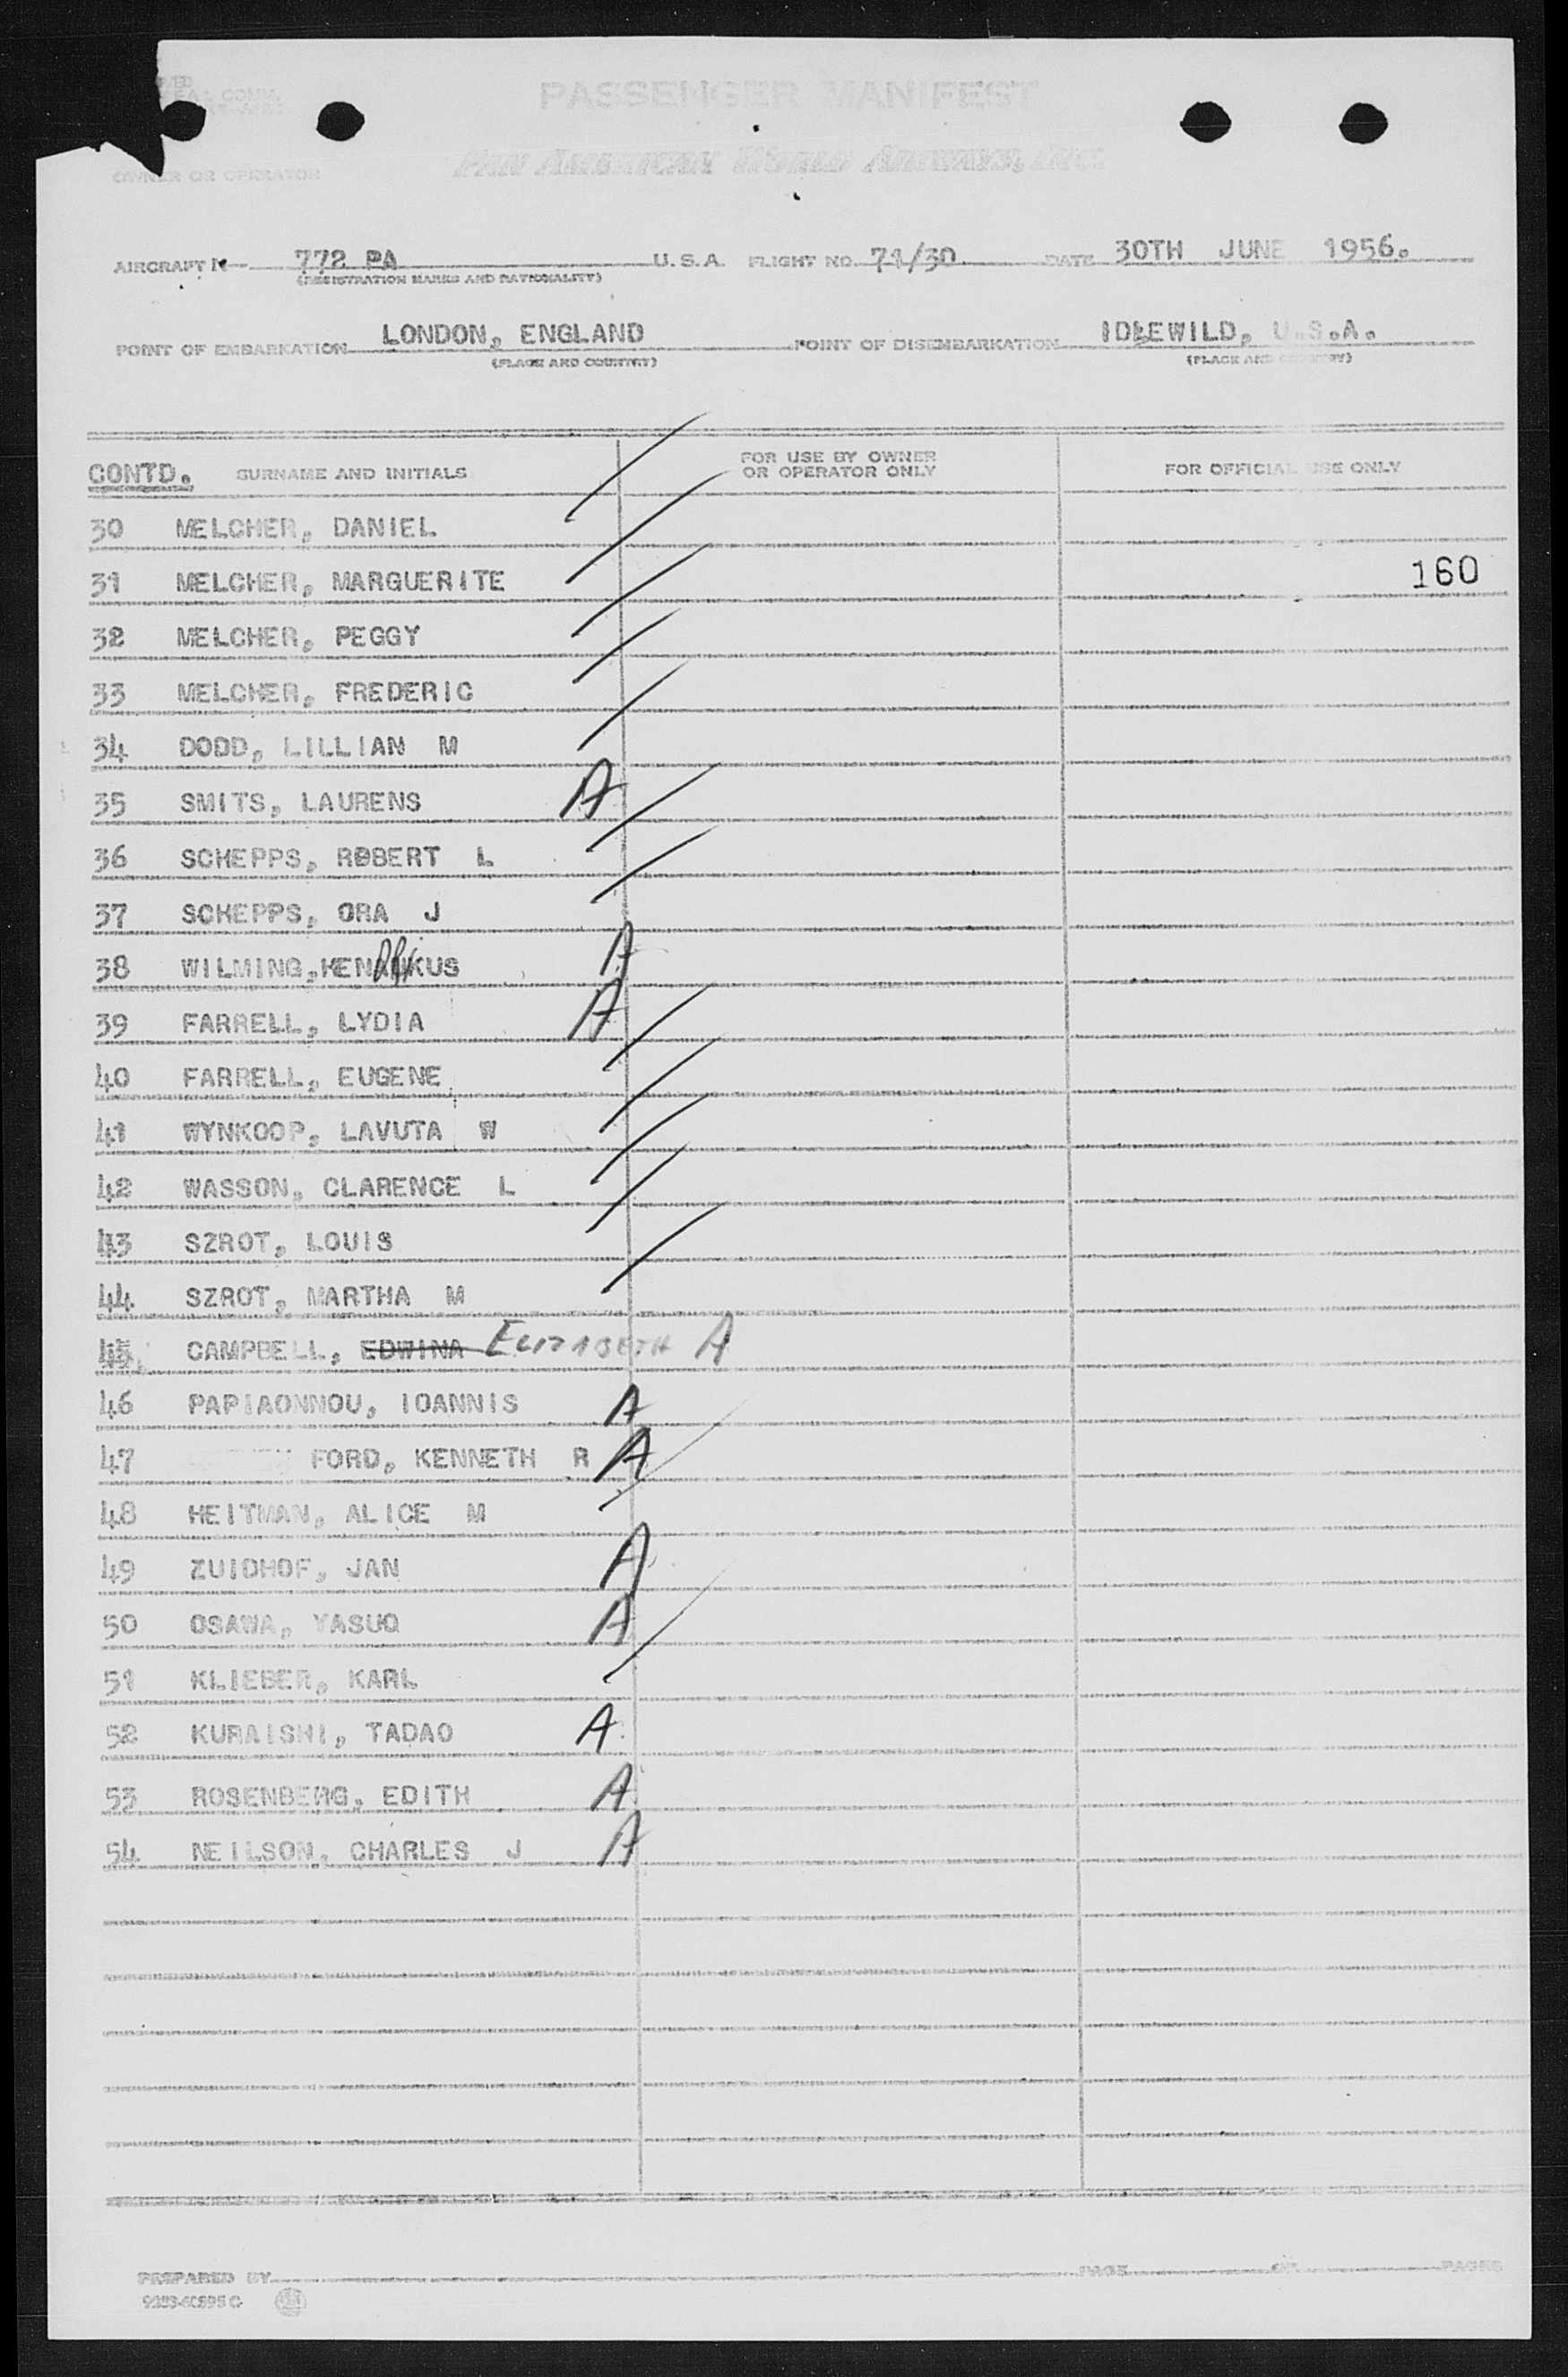 PASSENGER MANIFEST
PAN AMERICAN WORLD AIRWAYS, INC.
OWNER OR OPERATOR
AIRCRAFT N 772 PA U.S.A. FLIGHT NO. 71/30 DATE 30TH JUNE 1956.
(REGISTRATION MARKS AND NATIONALITY)
POINT OF EMBARKATION LONDON, ENGLAND POINT OF DISEMBARKATION IDLEWILD, U.S.A.
(PLACE AND COUNTRY) (PLACE AND COUNTRY)
CONTD. SURNAME AND INITIALS FOR USE BY OWNER OR OPERATOR ONLY FOR OFFICIAL USE ONLY
30 MELCHER, DANIEL
31 MELCHER, MARGUERITE 160
32 MELCHER, PEGGY
33 MELCHER, FREDERIC
34 DODD, LILLIAN M
35 SMITS, LAURENS A
36 SCHEPPS, ROBERT L
37 SCHEPPS, ORA J
38 WILMING, A
39 FARRELL, LYDIA A
40 FARRELL, EUGENE
41 WYNKOOP, LAVUTA W
42 WASSON, CLARENCE L
43 SZROT, LOUIS
44 SZROT, MARTHA M
45 CAMPBELL, EDWINA ELIZABETH A
46 PAPIAONNOU, IOANNIS A
47 FORD, KENNETH R A
48 HEITMAN, ALICE M
49 ZUIDHOF, JAN A
50 OSAWA, YASUO A
51 KLIEBER, KARL
52 KURAISHI, TADAO A
53 ROSENBERG, EDITH A
54 NEILSON, CHARLES J A
PREPARED BY PAGE OF PAGES